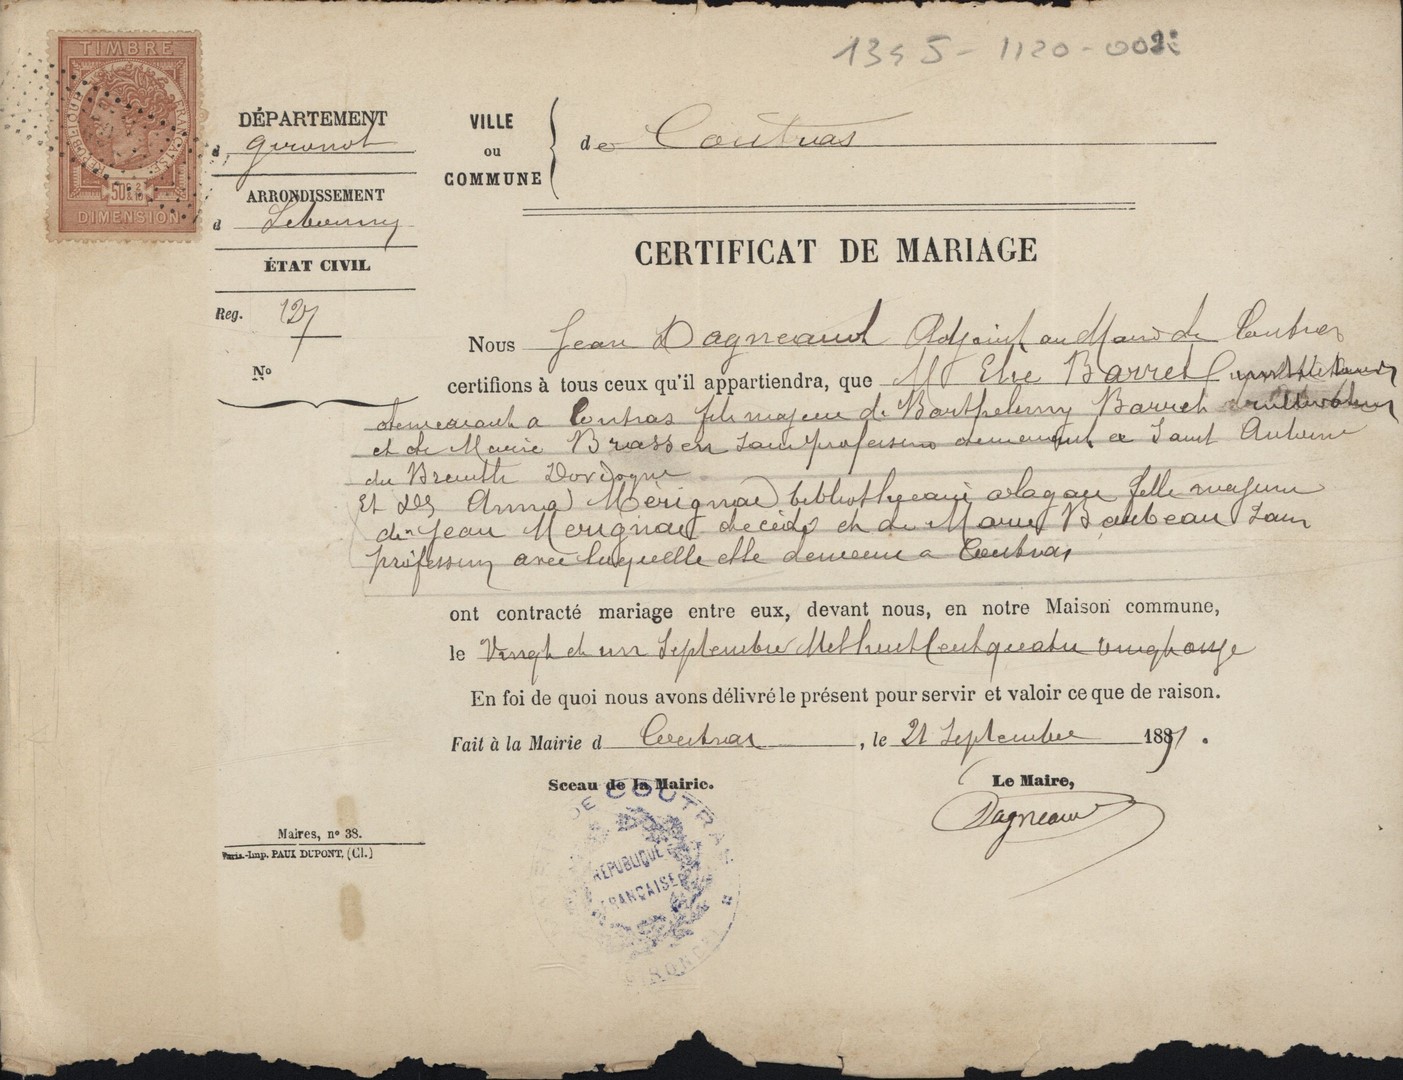 1395-1120-002
TIMBRE
REPUBLIQUE FRANÇAISE
50c
DIMENSION
DÉPARTEMENT
d Gironde
ARRONDISSEMENT
d Libourne
ÉTAT CIVIL
Reg. 127
No
VILLE
ou
COMMUNE
de Coutras
CERTIFICAT DE MARIAGE
Nous Jean Dagneaud Adjoint au Maire de Coutras
certifions à tous ceux qu'il appartiendra, que Mr Elie Barret
demeurant a Coutras fils majeur de Barthelemy Barret cultivateur
et de Marie Brassen sans profession demeurant a Saint Antoine
du Breuilh Dordogne
Et Dlle Anna Merignac bibliothecaire a la gare fille majeure
de Jean Merignac décédé et de Marie Baubeau sans
profession avec laquelle elle demeure a Coutras
ont contracté mariage entre eux, devant nous, en notre Maison commune,
le Vingt et un Septembre Mil huit Cent quatre vingt onze
En foi de quoi nous avons délivré le présent pour servir et valoir ce que de raison.
Fait à la Mairie d Coutras, le 21 Septembre 1891.
Sceau de la Mairie.
Le Maire,
Dagneaud
MAIRIE DE COUTRAS
RÉPUBLIQUE
FRANÇAISE
GIRONDE
Maires, no 38.
Paris.-Imp. PAUL DUPONT, (Cl.)